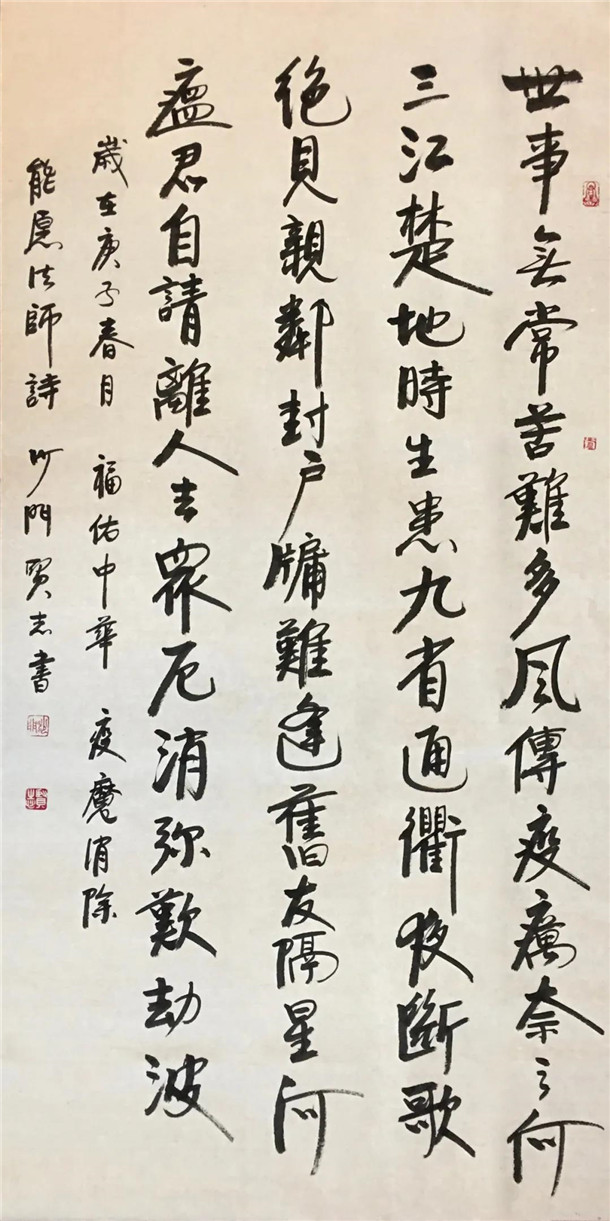 世事無常苦難多風傳疫癘奈之何
三江楚地時生患九省通衢夜斷歌
絕見親鄰封戶牖難逢舊友隔星河
瘟君自請離人去眾厄消弥歎劫波
歲在庚子春月 福佑中華 疫魔消除
能愿法師詩 沙門賢志書